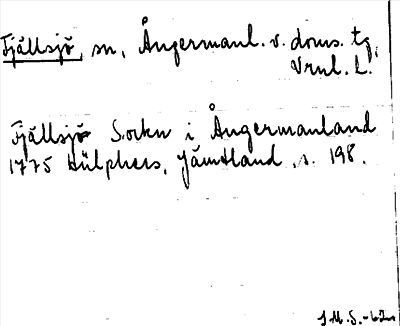 Fjällsjö, sn, Ångermanl. v. doms. tg,
Vrnl. L.
Fjällsjö Sockn i Ångermanland
1775 Hülphers, Jämtland, s. 198.
J.M.S.-62